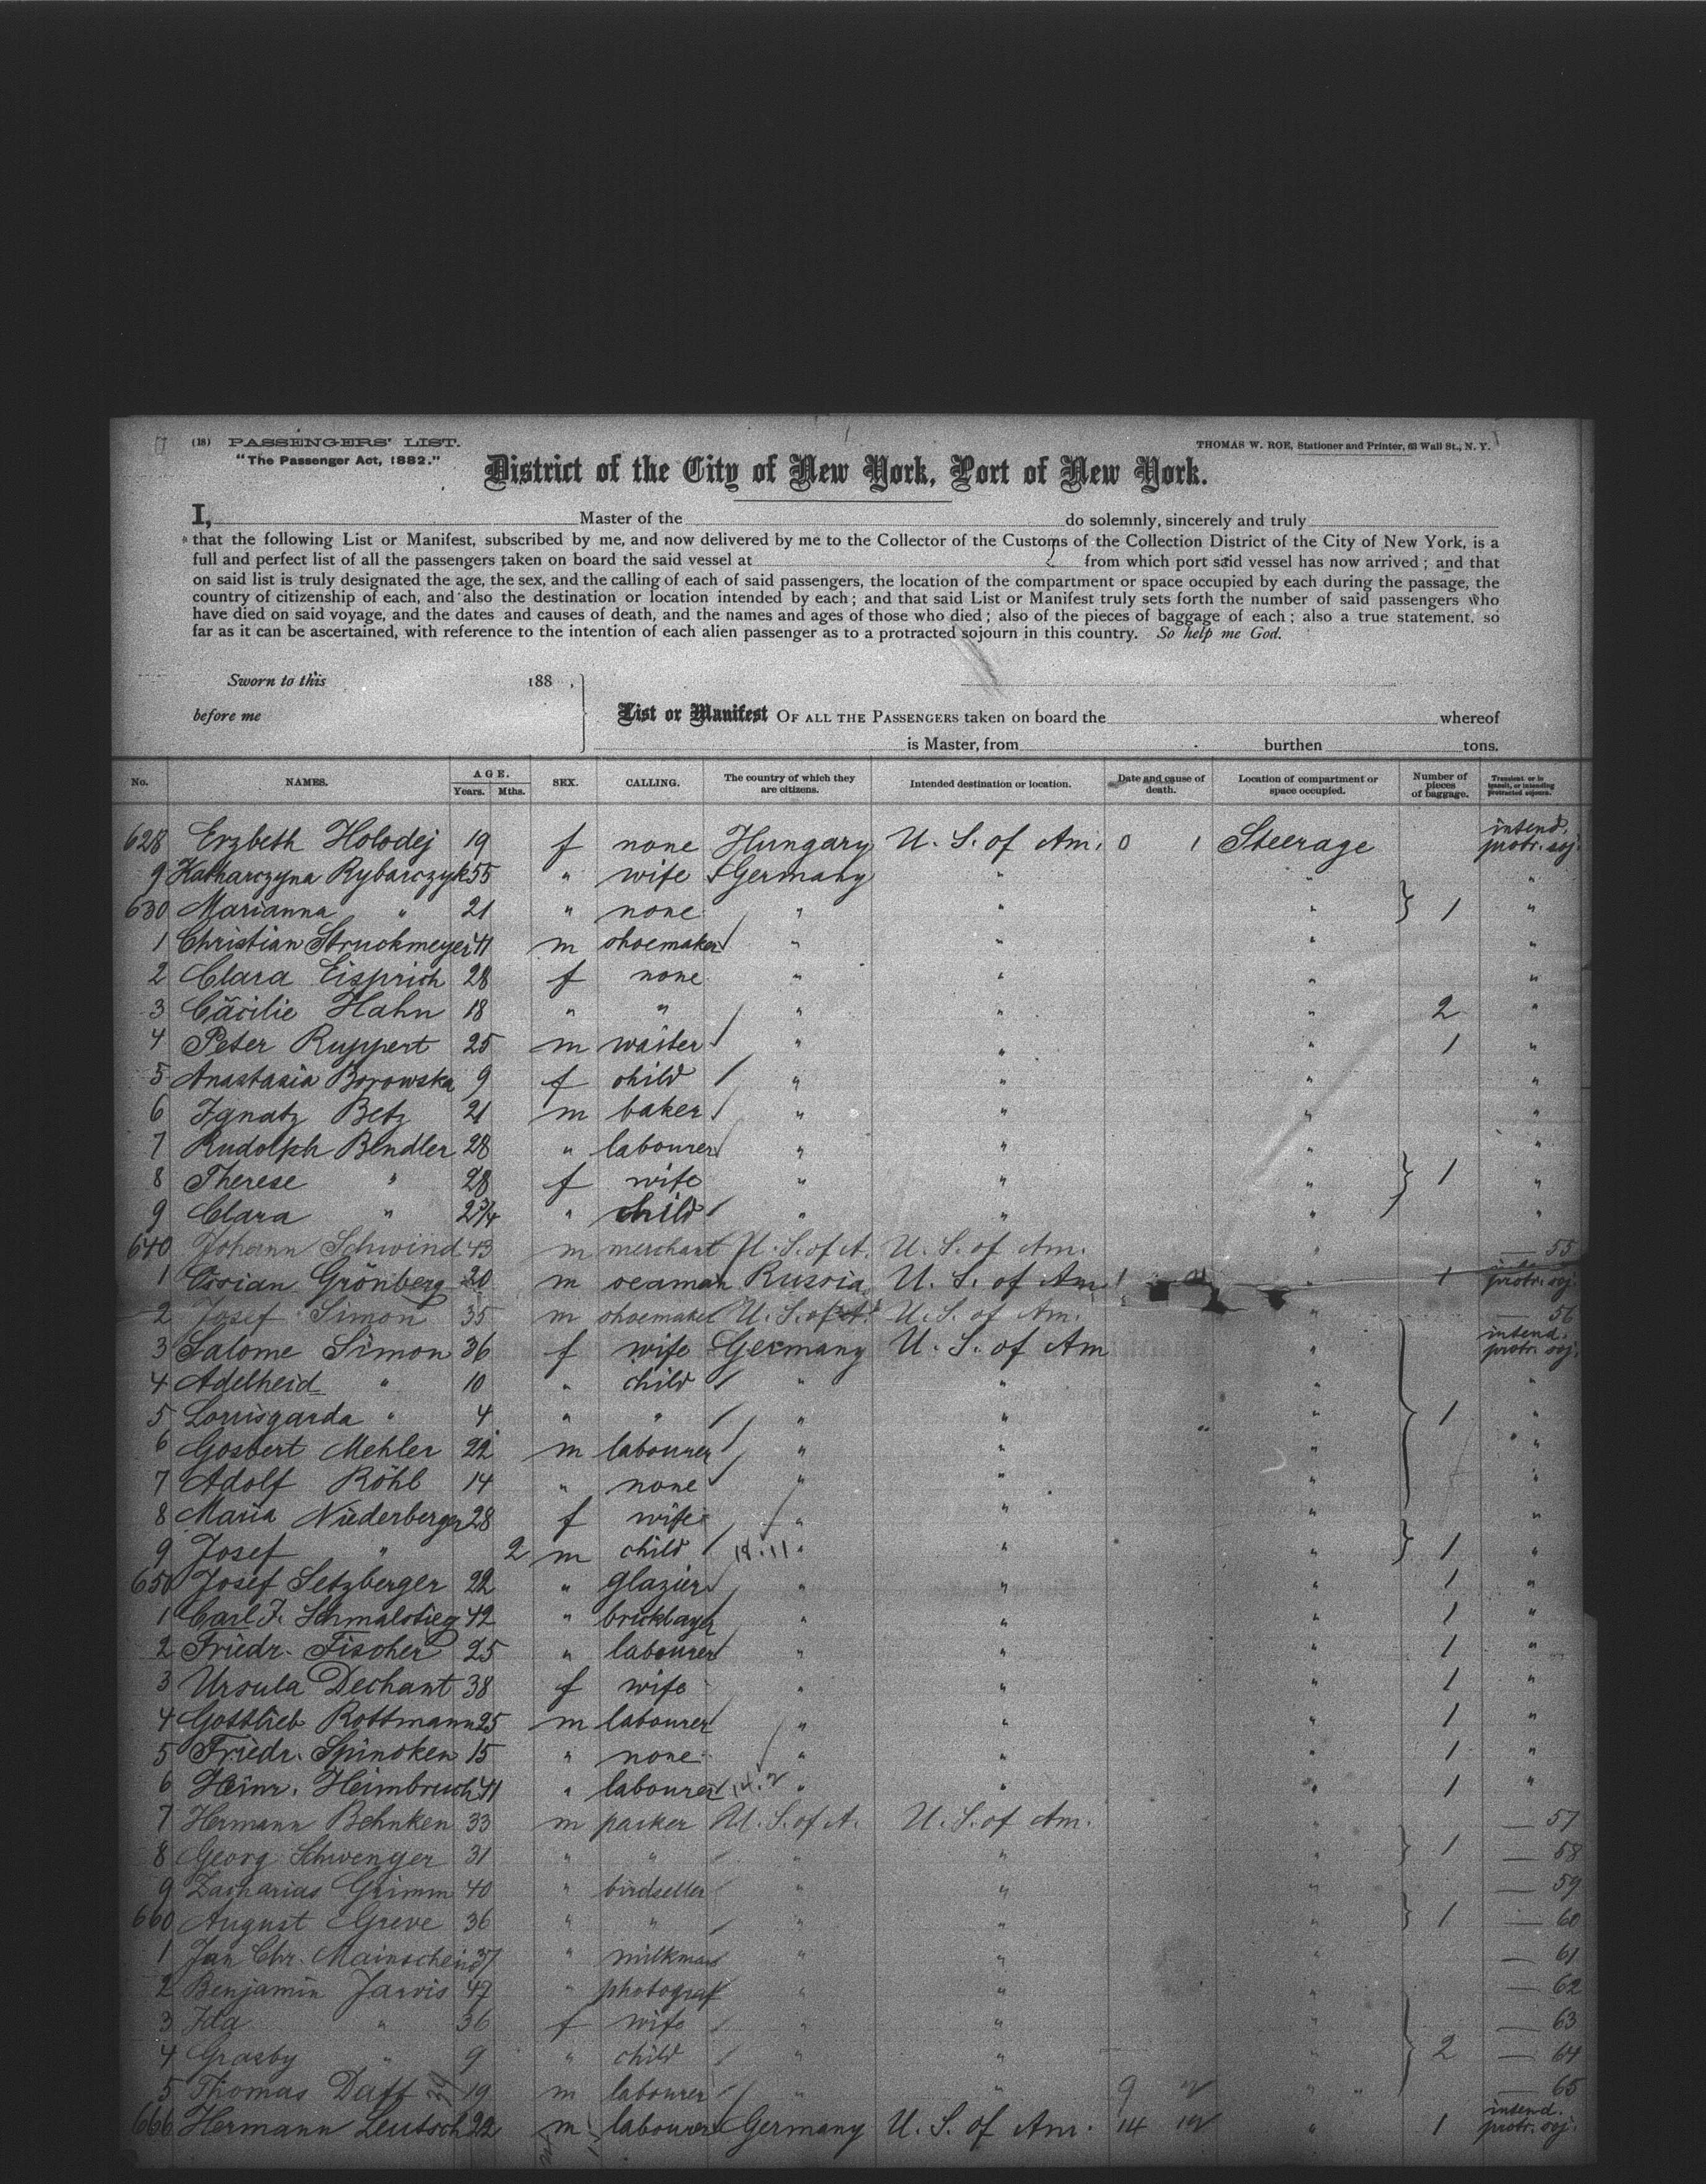 (18) PASSENGERS' LIST.
THOMAS W. ROE, Stationer and Printer, 63 Wall St., N. Y.
"The Passenger Act, 1882."
District of the City of New York, Port of New York.
I, Master of the do solemnly, sincerely and truly
that the following List or Manifest, subscribed by me, and now delivered by me to the Collector of the Customs of the Collection District of the City of New York, is a
full and perfect list of all the passengers taken on board the said vessel at from which port said vessel has now arrived; and that
on said list is truly designated the age, the sex, and the calling of each of said passengers, the location of the compartment or space occupied by each during the passage, the
country of citizenship of each, and also the destination or location intended by each; and that said List or Manifest truly sets forth the number of said passengers who
have died on said voyage, and the dates and causes of death, and the names and ages of those who died; also of the pieces of baggage of each; also a true statement, so
far as it can be ascertained, with reference to the intention of each alien passenger as to a protracted sojourn in this country. So help me God.
Sworn to this 188 ,
before me
List or Manifest OF ALL THE PASSENGERS taken on board the whereof
is Master, from burthen tons.
No. NAMES. AGE. Years. Mths. SEX. CALLING. The country of which they are citizens. Intended destination or location. Date and cause of death. Location of compartment or space occupied. Number of pieces of baggage. Transient or in transit, or intending protracted sojourn.
628 Erzbeth Holodej 19 f none Hungary U. S. of Am. 0 1 Steerage intend. protr. soj.
9 Katharczyna Rybarczyk 55 " wife Germany " " "
630 Marianna " 21 " none " " " 1 "
1 Christian Struckmeyer 41 m shoemaker " " " "
2 Clara Eisprich 28 f none " " " "
3 Cäcilie Hahn 18 " " " " " 2 "
4 Peter Ruppert 25 m waiter " " " 1 "
5 Anastasia Borowska 9 f child " " " "
6 Ignatz Betz 21 m baker " " " "
7 Rudolph Bendler 28 " labourer " " " "
8 Therese " 28 f wife " " " 1 "
9 Clara " 2 3/4 " child " " " "
640 Johann Schwind 43 m merchant U. S. of A. U. S. of Am. " — 55
1 Ossian Grönberg 20 m seaman Russia U. S. of Am " 1 protr. soj.
2 Josef Simon 35 m shoemaker U. S. of A. U. S. of Am. " — 56
3 Salome Simon 36 f wife Germany U. S. of Am " intend. protr. soj.
4 Adelheid " 10 " child " " " "
5 Lorrisgarda " 4 " " " " " 1 "
6 Gosbert Mehler 22 m labourer " " " "
7 Adolf Röhl 14 " none " " " "
8 Maria Niederberger 28 f wife " " " "
9 Josef " 2 m child " " " 1 "
650 Josef Setzberger 22 " glazier " " " 1 "
1 Carl F. Schmalstieg 42 " bricklayer " " " 1 "
2 Friedr. Fischer 25 " labourer " " " 1 "
3 Ursula Dechant 38 f wife " " " 1 "
4 Gottlieb Rottmann 25 m labourer " " " 1 "
5 Friedr. Spincken 15 " none " " " 1 "
6 Heinr. Heimbruch 41 " labourer " " " 1 "
7 Hermann Behnken 33 m parker U. S. of A. U. S. of Am. " — 57
8 Georg Schwenger 31 " " " " " 1 — 58
9 Zacharias Grimm 40 " birdseller " " " — 59
660 August Greve 36 " " " " " 1 — 60
1 Jan Chr. Mainschein 37 " milkman " " " — 61
2 Benjamin Jarvis 47 " photograf " " " — 62
3 Ida " 36 f wife " " " — 63
4 Grasby " 9 " child " " " 2 — 64
5 Thomas Daff 19 m labourer " " 9 " — 65
666 Hermann Leutsch 22 m labourer Germany U. S. of Am. 14 " 1 intend. protr. soj.